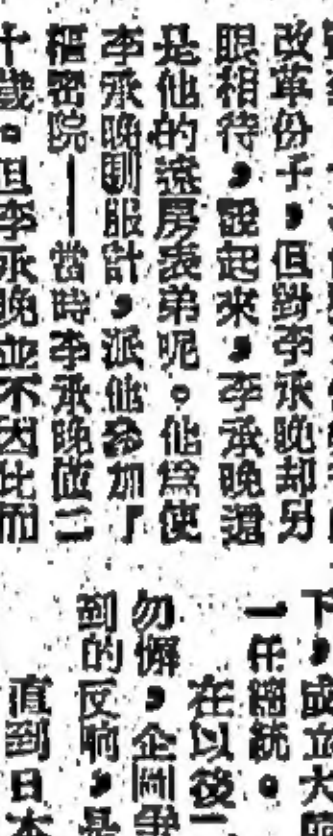 改革份子，但對李承晚却另
眼相待，說起來，李承晚還
是他的遠房表弟呢。他為使
李承晚馴服計，派他參加了
樞密院——當時李承晚僅二
十歲。但李承晚並不因此而
下，成立大
一任總統。
在以後
勿懈，企圖爭
到的反响，是
直到日本